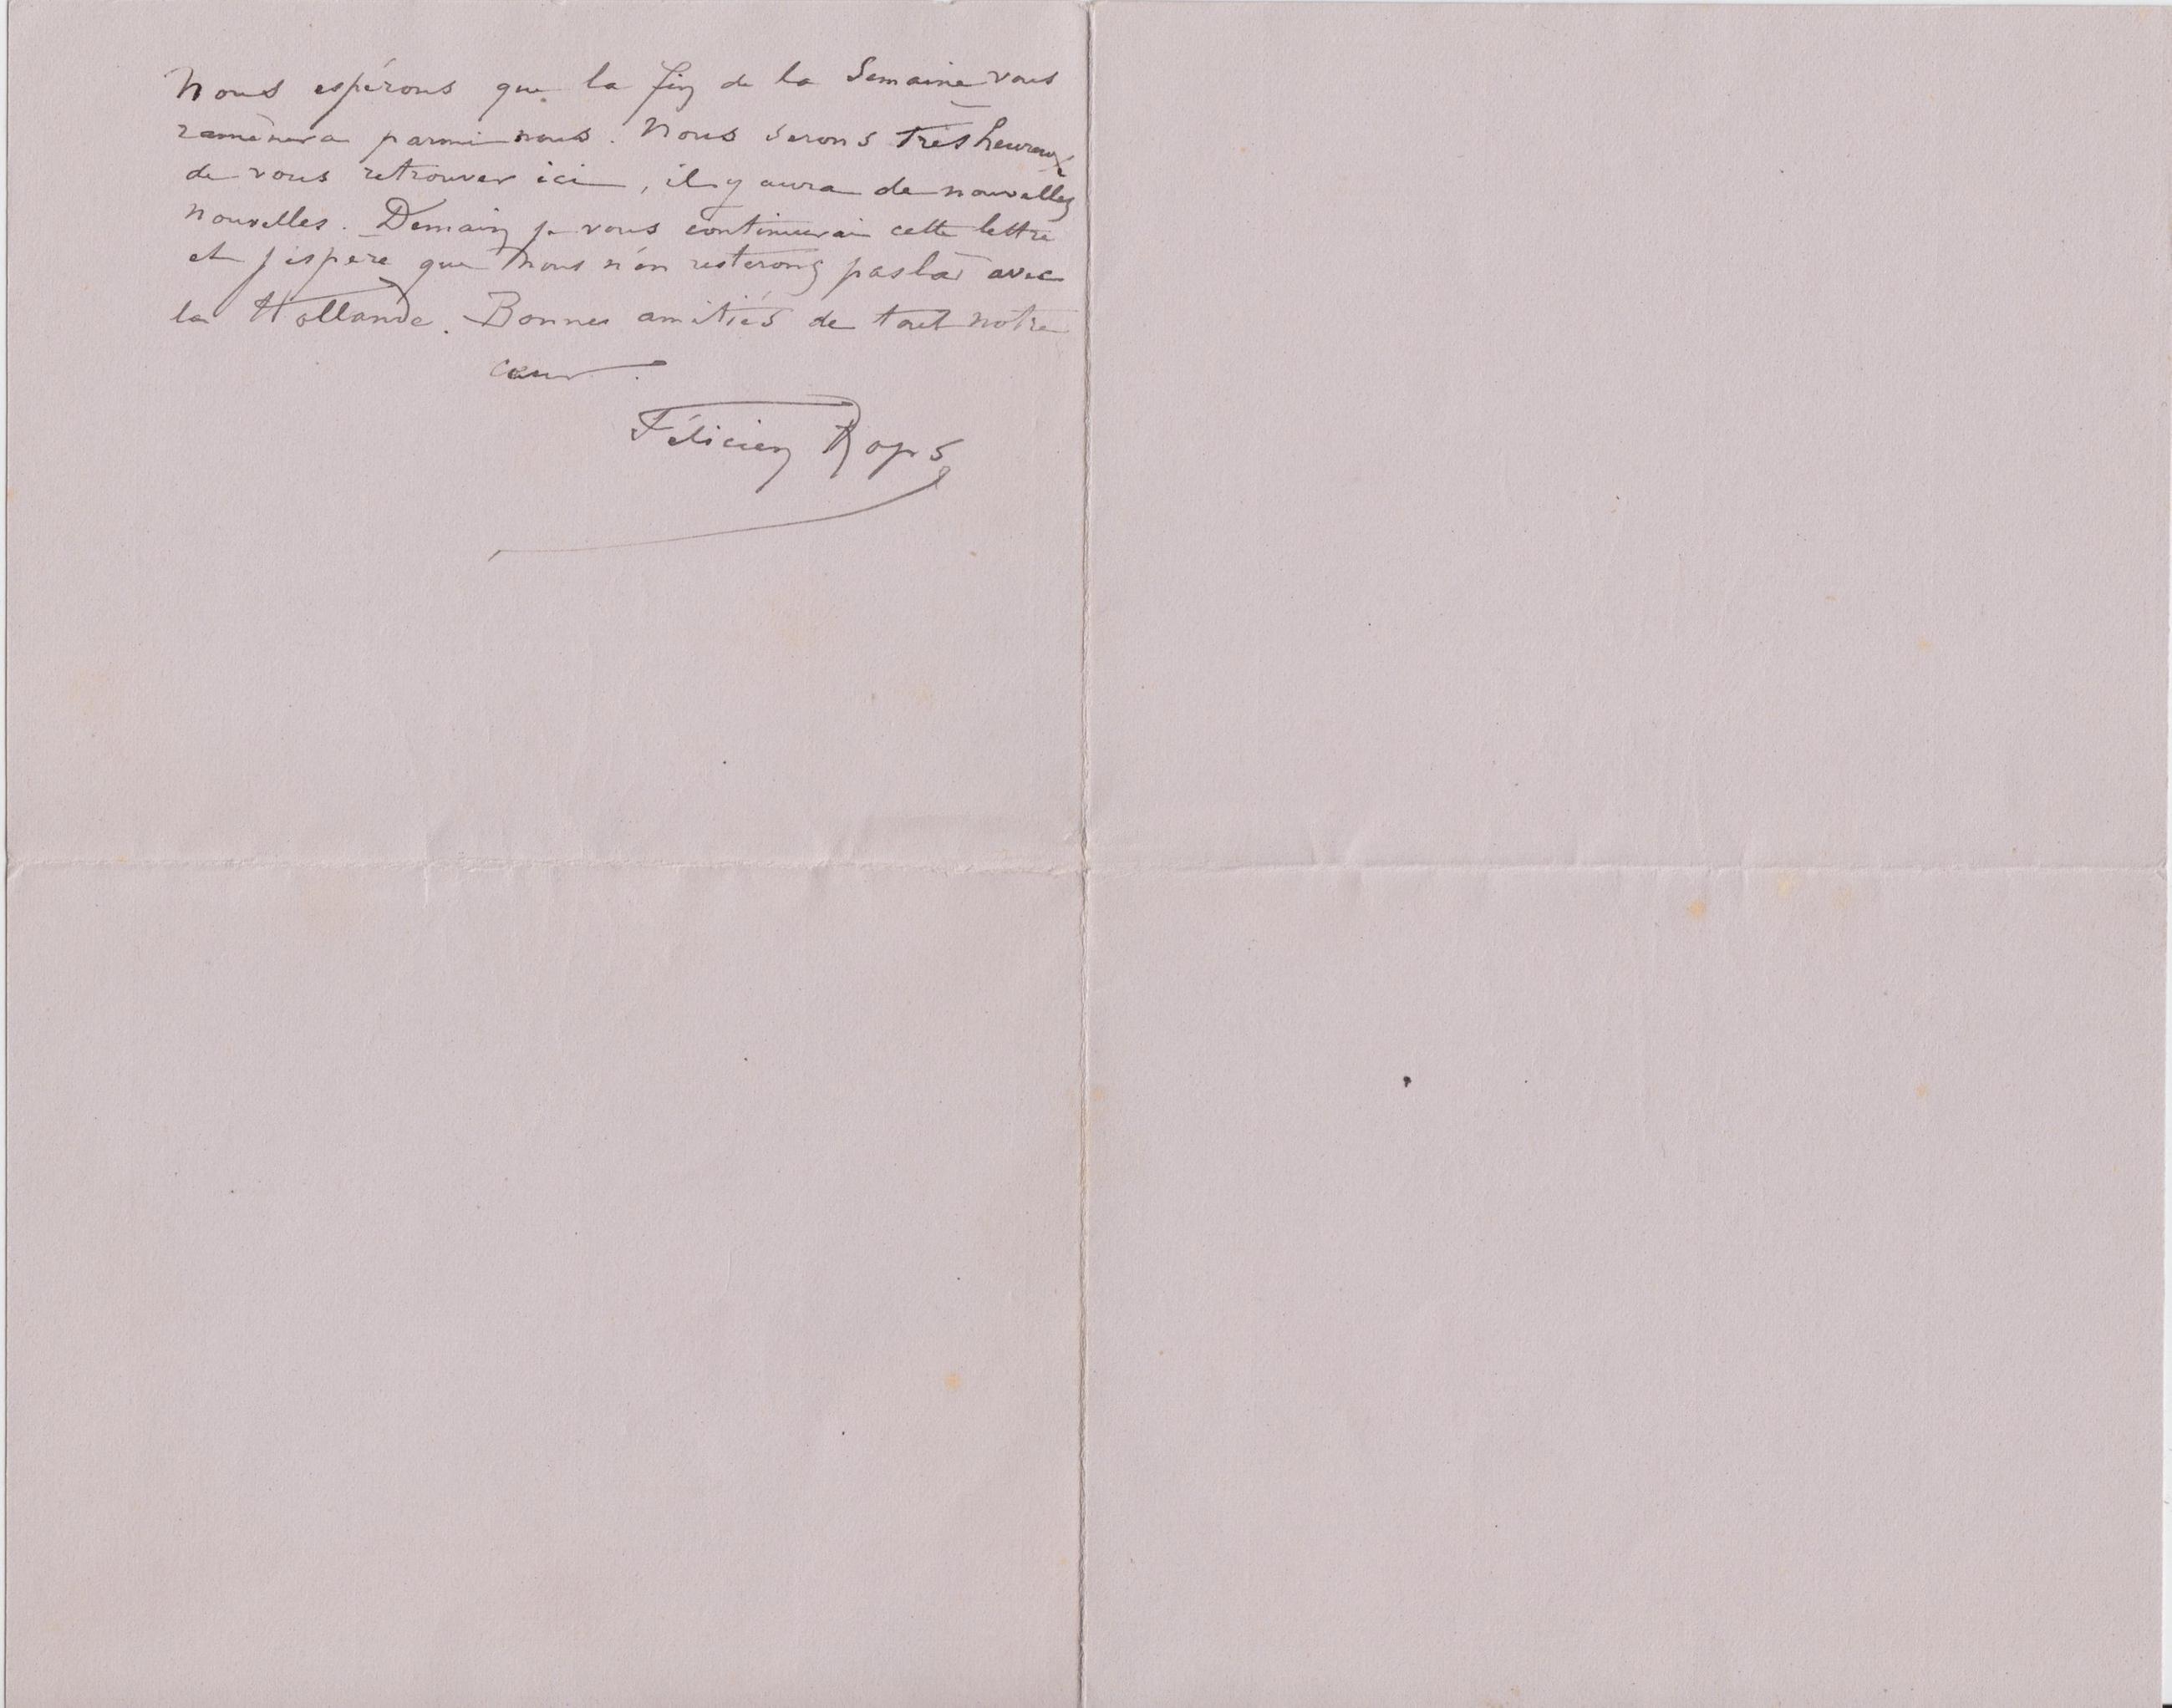 Nous espérons que la fin de la Semaine vous
ramènera parmi nous. Nous serons très heureux
de vous retrouver ici, il y aura de nouvelles
nouvelles. Demain je vous continuerai cette lettre
et j'espère que nous n'en resterons pas là avec
la Hollande. Bonnes amitiés de tout notre
cœur.
Félicien Rops